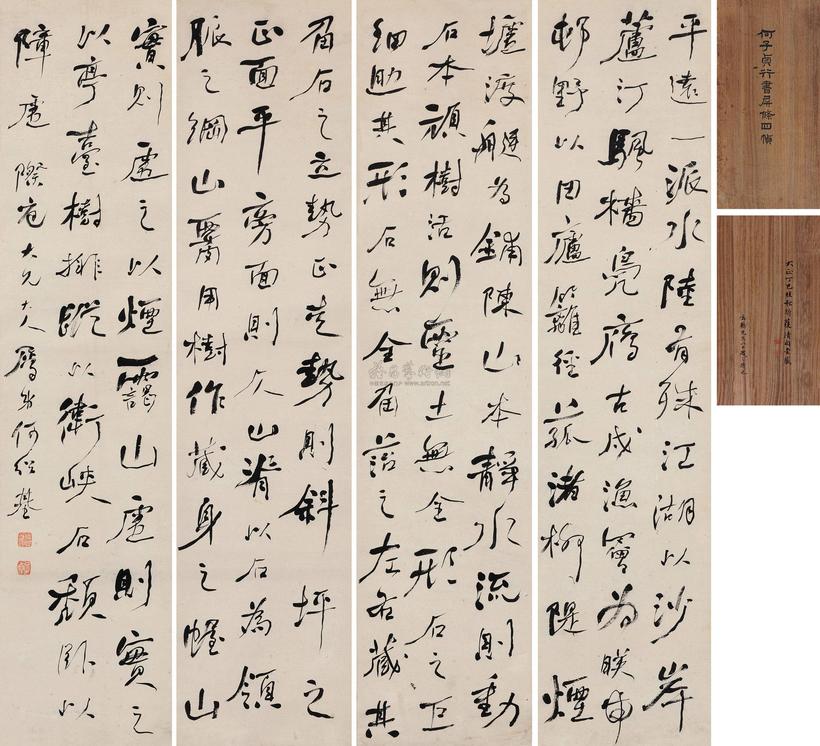 平遠一派水陸有殊江湖以沙岸
蘆汀颿檣鳧雁古戍漁罾為映帶
邨野以田廬籬徑菰渚柳隄煙
墟渡艇為鋪陳山本靜水流則動
石本頑樹活則靈土無全形石之巨
細助其形石無全角之左右藏其
角石之立勢正走勢則斜坪之
正面平旁面則仄山脊以石為領
脈之綱山用樹作藏身之幄山
實則虛之以煙靄山虛則實之
以亭臺樹排蹤以衛峽石頹臥以
障虛 際庵大兄大人屬書何紹基
何子貞行書屏條四幀
大正丁巳桂秋
www.artron.net